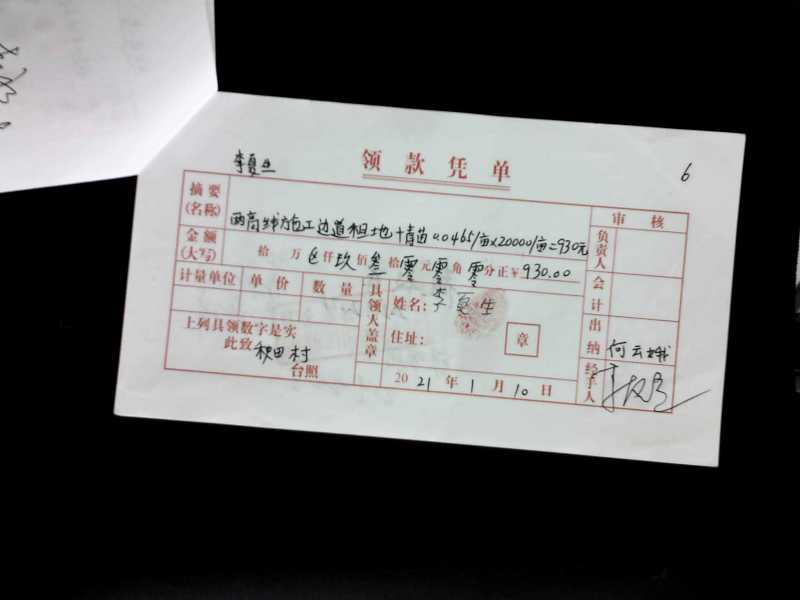 李夏生
领款凭单
6
摘要(名称)
两高线施工边道租地+青苗0.0465/亩×20000/亩=930元
审核
金额(大写)
拾 万 仟 玖 佰 叁 拾 零 元 零 角 零 分正¥930.00
负责人
计量单位 单价 数量
具领人盖章
姓名: 李夏生
会计
上列具领数字是实
此致 秧田村
台照
住址:
章
出纳 何云娥
2021年1月10日
经手人